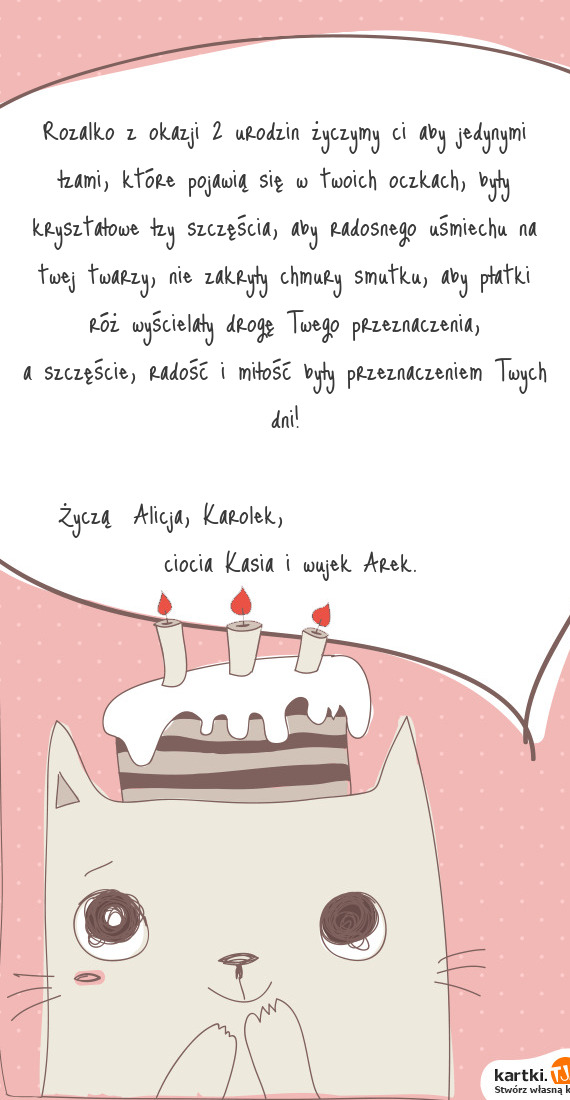 Rozalko z okazji 2 urodzin życzymy ci aby jedynymi
łzami, które pojawią się w twoich oczkach, były
kryształowe łzy szczęścia, aby radosnego uśmiechu na
twej twarzy, nie zakryły chmury smutku, aby płatki
róż wyścielały drogę Twego przeznaczenia,
a szczęście, radość i miłość były przeznaczeniem Twych
dni!
Życzą Alicja, Karolek,
ciocia Kasia i wujek Arek.
kartki.TJ
Stwórz własną k